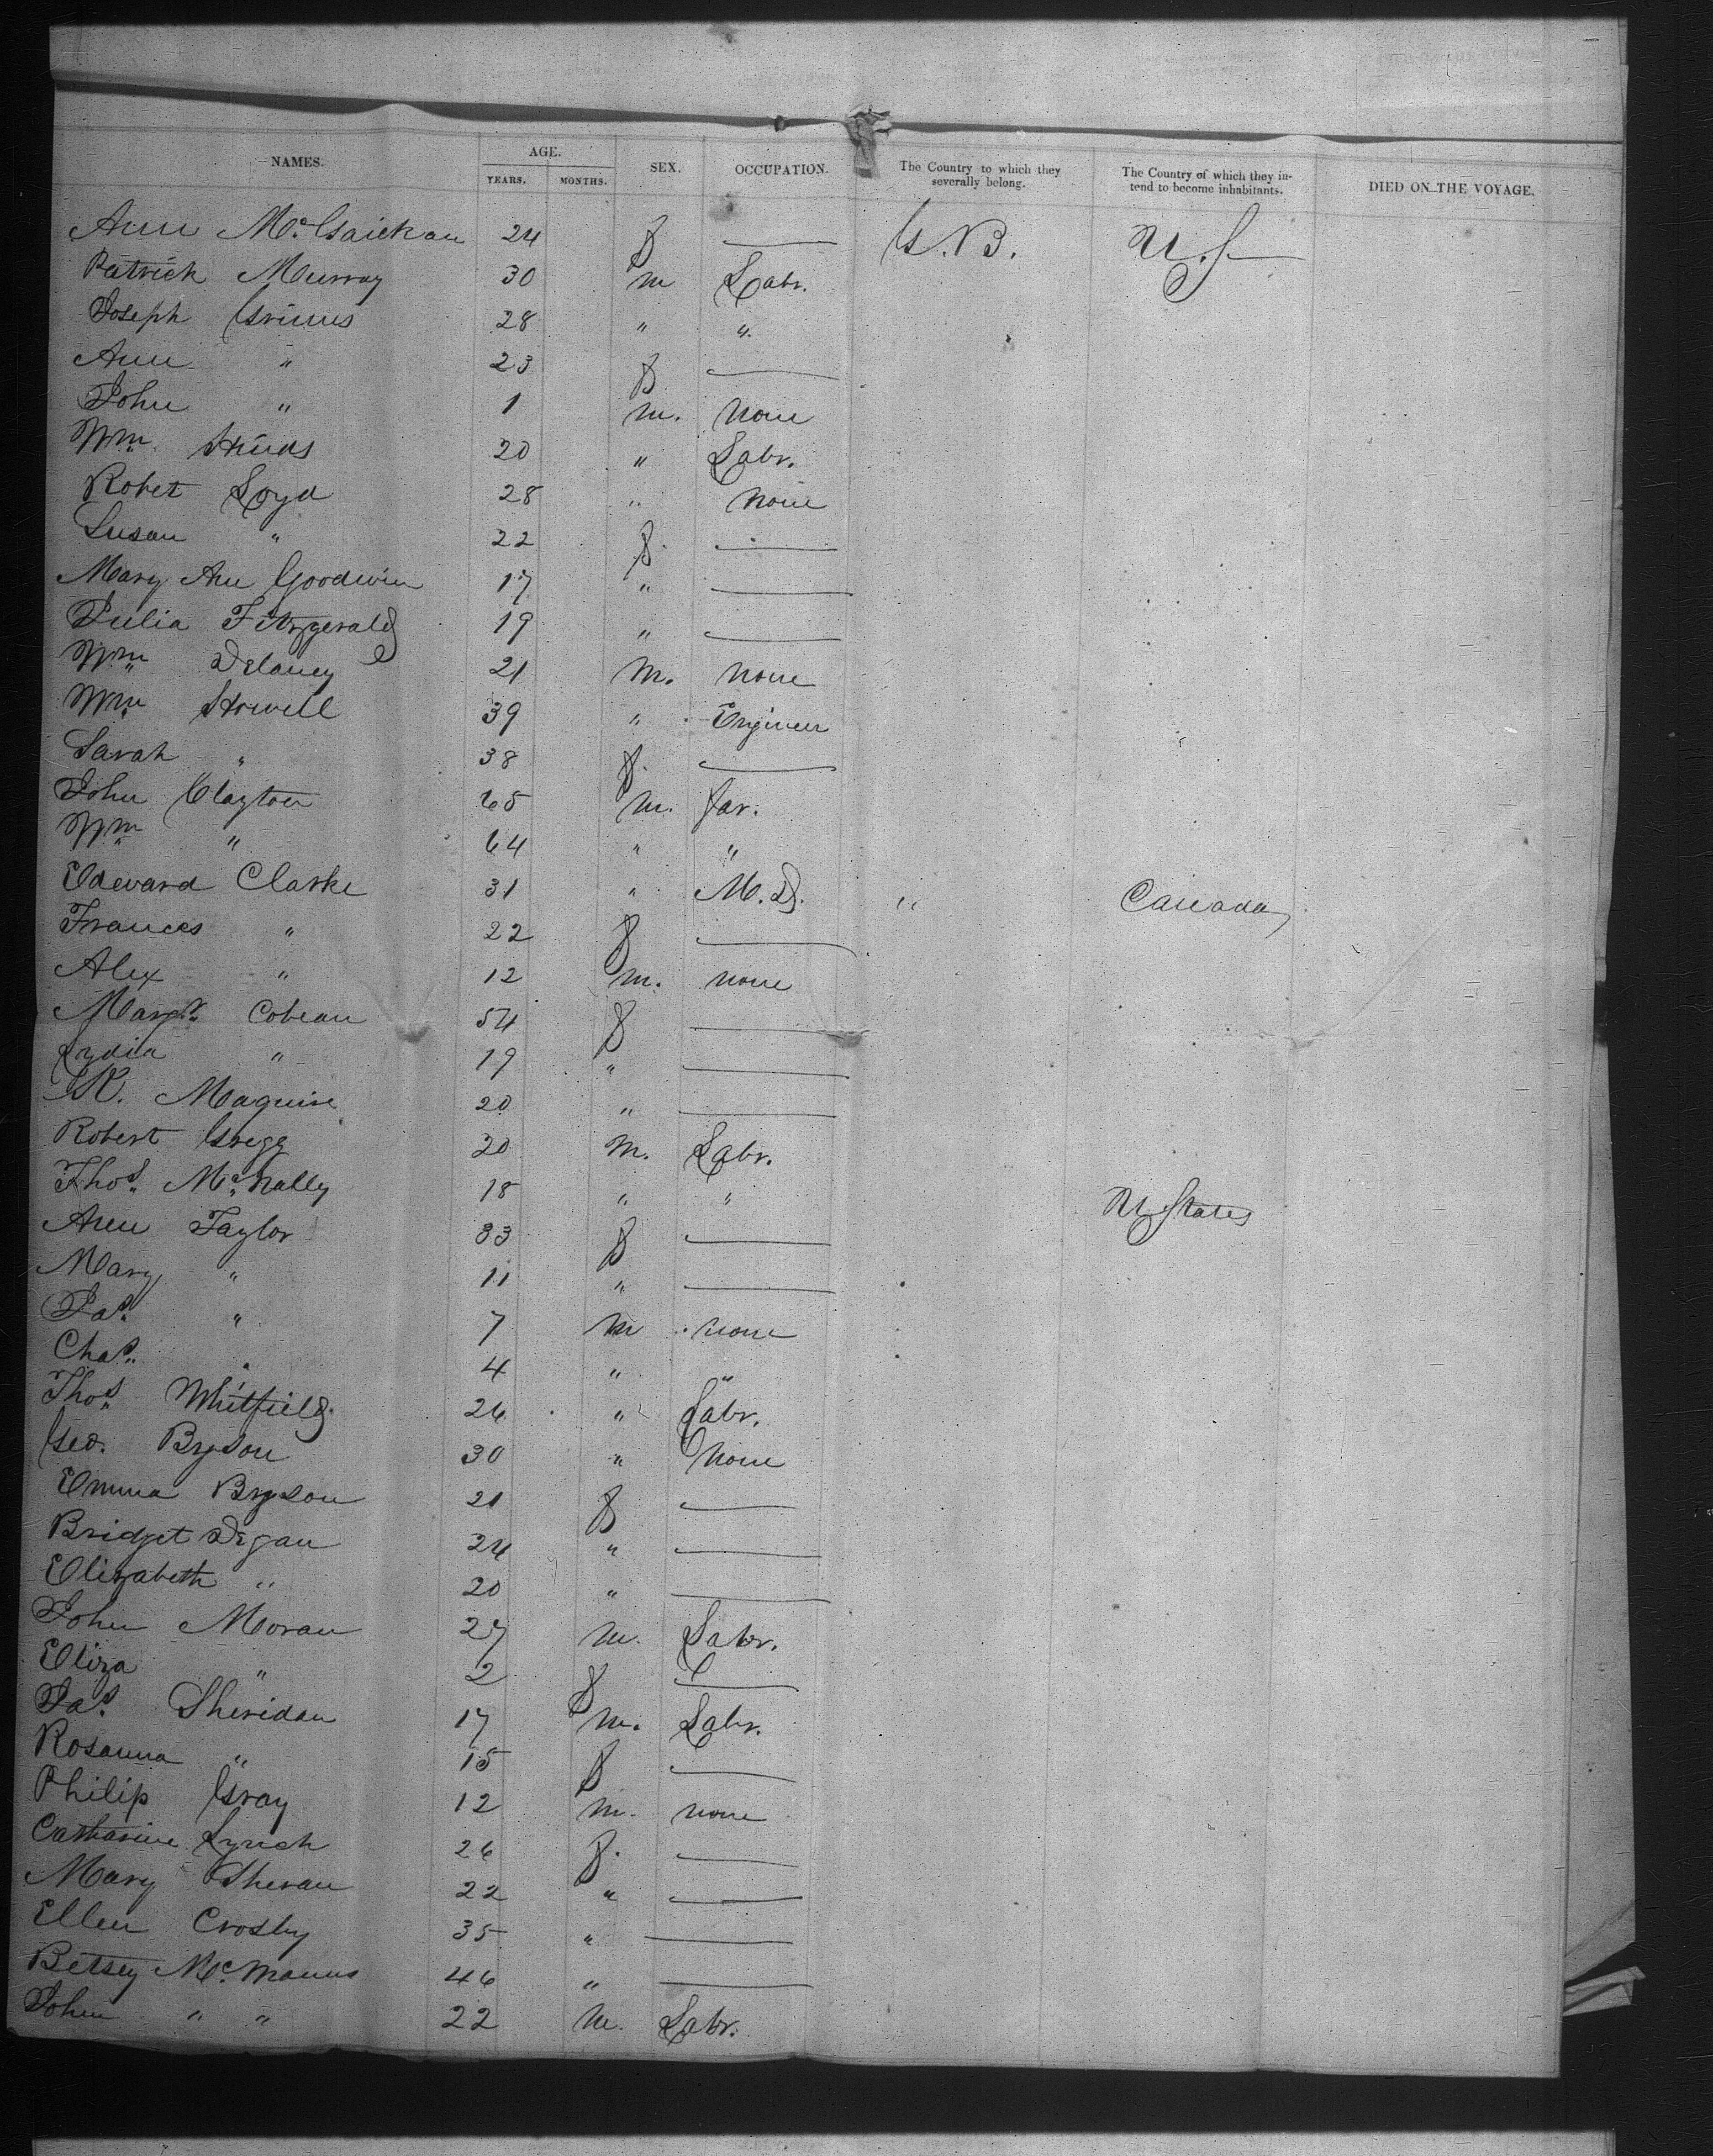 NAMES. AGE. YEARS. MONTHS. SEX. OCCUPATION. The Country to which they severally belong. The Country of which they intend to become inhabitants. DIED ON THE VOYAGE.
Ann 24 f — G.B. U.S.
Patrick Murray 30 m Labr.
Joseph Grimes 28 " "
Ann " 23 f —
John " 1 m. none
Wm. Hinds 20 " Labr.
Robet Loyd 28 " none
Susan " 22 f. —
Mary Ann Goodwin 17 " —
Julia Fitzgerald 19 " —
Wm Delaney 21 m. none
Wm Howell 39 " Engineer
Sarah " 38 f. —
John Clayton 65 m. far.
Wm " 64 " "
Edward Clarke 31 " M.D. " Canada
Frances " 22 f —
Alex " 12 m. none
Margt. Cobean 54 f —
Lydia " 19 " —
K. Maguire 20 " —
Robert Gregg 20 m. Labr.
Thos. McNally 18 " " U States
Ann Taylor 33 f —
Mary " 11 " —
Jas. " 7 m none
Chas. " 4 " "
Thos. Whitfield 26 " Labr.
Geo. Bryson 30 " none
Emma Bryson 21 f —
Bridget Degan 24 " —
Elizabeth " 20 " —
John Moran 27 m. Labr.
Eliza " 2 f —
Jas. Sheridan 17 m. Labr.
Rosanna " 15 f —
Philip Gray 12 m. none
Catharine Lynch 26 f. —
Mary Sheran 22 " —
Ellen Crosby 35 " —
Betsey McManus 46 " —
John " " 22 m. Labr.